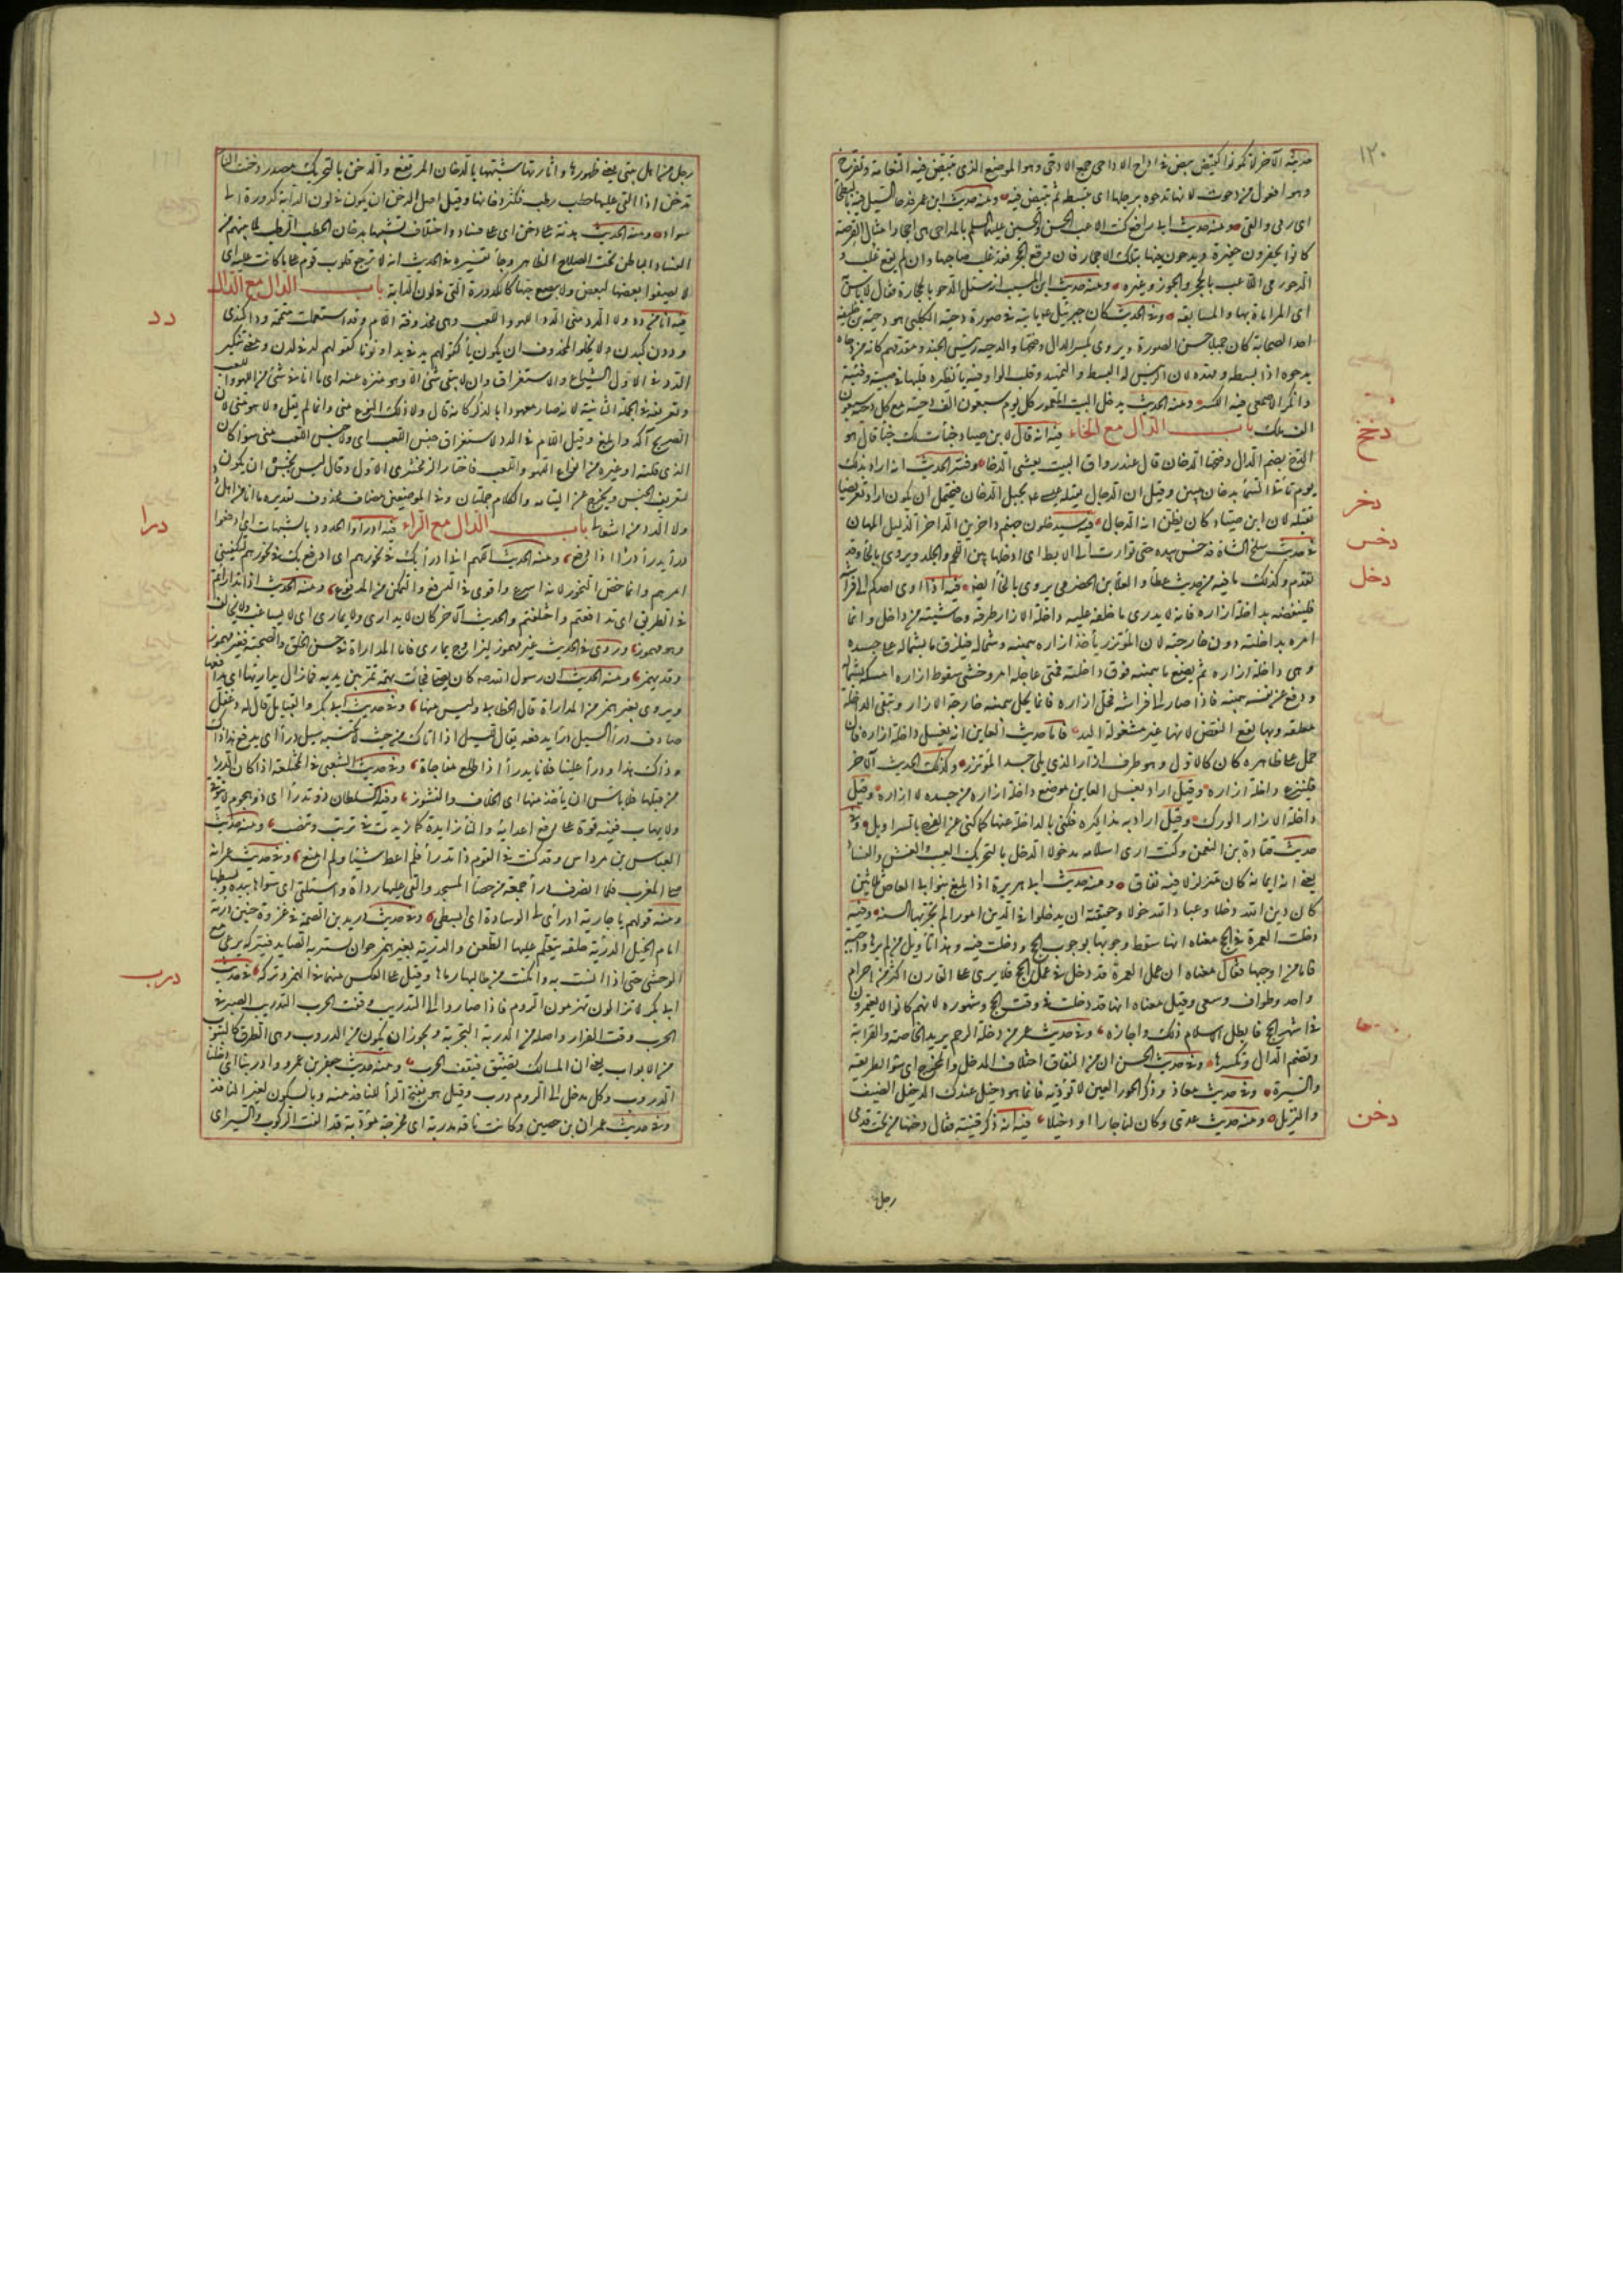 ١٢٠
حديثه الآخر لا تكونوا كقيض بيض في اداح الاداحي جمع الادحي وهو الموضع الذي تبيض فيه النعامة وتفرخ
وهو افعول من دحوت لانها تدحوه برجلها اي تبسطه ثم تبيض فيه ومنه حديث ابن عمر فدحا السيل فيه بالبطحاء
اي رمى والقى ومنه حديث ابي رافع كنت الاعب الحسن والحسين عليهما السلم بالمداحي هي احجار امثال القرصة
كانوا يحفرون حفيرة ويدحون فيها بتلك الاحجار فان وقع الحجر فقد غلب صاحبها وان لم يقع غلب و
الدحو رمي اللاعب بالحجر والجوز وغيره ومنه حديث ابن المسيب انه سئل الدحو بالحجارة فقال لا باس
اي المراماة بها والمسابقة وفي الحديث كان جبرئيل يأتيه في صورة دحية الكلبي هو دحية بن خليفة
احد الصحابة كان جميلا حسن الصورة ويروى بكسر الدال وفتحها والدحية رئيس الجند ومقدمهم كانه من دحاه
يدحوه اذا بسطه ومهده لان الرئيس له البسط والتمهيد وقلب الواو فيه يا نظيره قلبها في صبية وفتية
وانكر الاصمعي فيه الكسر ومنه الحديث يدخل البيت المعمور كل يوم سبعون الف دحية مع كل دحية سبعون
الف ملك باب الدال مع الخاء فيه انه قال لابن صياد خبأت لك خبأ قال هو
الدخ بضم الدال وفتحها الدخان قال عند رواق البيت يغشى الدخا وفسر الحديث انه اراد بذلك
يوم تأتي السماء بدخان مبين وقيل ان الدجال يقتله عيسى بجبل الدخان فيحتمل ان يكون اراد تعريضا
بقتله لان ابن صياد كان يظن انه الدجال فيه سيدخلون جهنم داخرين الداخر الذليل المهان
في حديث سلخ الشاة فدخس بيده حتى توارت الى الابط اي ادخلها بين اللحم والجلد ويروى بالحاء وقد
تقدم وكذلك ما فيه من حديث عطاء والعلاء بن الحضرمي يروى بالخاء ايضا فيه اذا اوى احدكم الى فراشه
فلينفضه بداخلة ازاره فانه لا يدري ما خلفه عليه داخلة الازار طرفه وحاشيته من داخل وانما
امره بداخلته دون خارجته لان المؤتزر يأخذ ازاره بيمينه وشماله فيلزق ما بشماله على جسده
وهي داخلة ازاره ثم يضع ما بيمينه فوق داخلته فمتى عاجله امر وخشي سقوط ازاره امسكه بشماله
ودفع عن نفسه بيمينه فاذا صار الى فراشه فحل ازاره فانما يحل بيمينه خارجة الازار وتبقى الداخلة
معلقة وبها يقع النفض لانها غير مشغولة باليد فاما حديث العاين انه يغسل داخلة ازاره فان
حمل على ظاهره كان كالاول وهو طرف الازار الذي يلي جسد المؤتزر وكذلك الحديث الآخر
فلينزع داخلة ازاره وقيل اراد يغسل العاين موضع داخلة ازاره من جسده لا ازاره وقيل
داخلة الازار الورك وقيل اراد به مذاكيره فكنى بالداخلة عنها كما كنى عن الفرج بالسراويل وفي
حديث قتادة بن النعمن وكنت ارى اسلامه مدخولا الدخل بالتحريك العيب والغش والفساد
يعني ان ايمانه كان متزلزلا فيه نفاق ومنه حديث ابي هريرة اذا بلغ بنو ابي العاص ثلاثين
كان دين الله دخلا وعباد الله خولا وحقيقته ان يدخلوا في الدين امورا لم تجر بها السنة وفيه
دخلت العمرة في الحج معناه انها سقط وجوبها بوجوب الحج ودخلت فيه وهذا تأويل من لم يرها واجبة
فاما من اوجبها فقال معناه ان عمل العمرة قد دخل في عمل الحج فلا يرى على القارن اكثر من احرام
واحد وطواف وسعي وقيل معناه انها قد دخلت في وقت الحج وشهوره لانهم كانوا لا يعتمرون
في اشهر الحج فابطل الاسلام ذلك واجازه وفي حديث عمر من دخلة الرحم يريد الخاصة والقرابة
وتضم الدال وتكسرها وفي حديث الحسن ان من النفاق اختلاف المدخل والمخرج اي سوء الطريقة
والسيرة وفي حديث معاذ وذكر الحور العين لا تؤذيه فانما هو دخيل عندك الدخيل الضيف
والنزيل ومنه حديث عدي وكان لنا جارا او دخيلا فيه انه ذكر فتنة فقال دخنها من تحت قدمي
رجل
دخخ
دخر
دخس
دخل
دخن
رجل من اهل بيتي يعني ظهورها واثارتها شبهها بالدخان المرتفع والدخن بالتحريك مصدر دخنت النار
تدخن اذا القي عليها حطب رطب فكثر دخانها وقيل اصل الدخن ان يكون في لون الدابة كدورة الى
سواد ومنه الحديث هدنة على دخن اي على فساد واختلاف تشبيها بدخان الحطب الرطب لما بينهم من
الفساد الباطن تحت الصلاح الظاهر وجاء تفسيره في الحديث انه لا ترجع قلوب قوم على ما كانت عليه اي
لا يصفوا بعضها لبعض ولا ينصع حبها كالكدورة التي في لون الدابة باب الدال مع الدال
فيه ما انا من دد ولا الدد مني الدد اللهو واللعب وهي محذوفة اللام وقد استعملت متممة ددا كندى
وددن كبدن ولا يخلو المحذوف ان يكون ياء كقولهم يد في يدي او نونا كقولهم لد في لدن ومعنى تنكير
الدد في الاول الشياع والاستغراق وان لا يبقى شيء الا وهو منزه عنه اي ما انا في شيء من اللهو واللعب
وتعريفه في الجملة الثانية لانه صار معهودا بالذكر كانه قال ولا ذلك النوع مني وانما لم يقل ولا هو مني لان
الصريح آكد وابلغ وقيل اللام في الدد لاستغراق جنس اللعب اي ولا جنس اللعب مني سواء كان
الذي قلته او غيره من انواع اللهو واللعب فاختار الزمخشري الاول وقال ليس يحسن ان يكون
لتعريف الجنس ويخرج عن التيامه والكلام جملتان وفي الموضعين مضاف محذوف تقديره ما انا من اهل دد
ولا الدد من اشغالي باب الدال مع الراء فيه ادرأوا الحدود بالشبهات اي ادفعوا
درأ يدرأ درءا اذا دفع ومنه الحديث اللهم اني ادرأ بك في نحورهم اي ادفع بك في نحورهم لتكفيني
امرهم وانما خص النحور لانه اسرع واقوى في الدفع والتمكن من المدفوع ومنه الحديث اذا تدارأتم
في الطريق اي تدافعتم واختلفتم والحديث الآخر كان لا يداري ولا يماري اي لا يشاغب ولا يخالف
وهو مهموز وروي في الحديث غير مهموز ليزاوج يماري فاما المداراة في حسن الخلق والصحبة فغير مهموز
وقد يهمز ومنه الحديث ان رسول الله كان يصلي فجاءت بهمة تمر بين يديه فما زال يداريها اي يدافعها
ويروى بغير همز من المداراة قال الخطابي وليس منها وفي حديث ابي بكر والقبايل قال له دغفل
صادف درأ السيل درأ يدفعه يقال للسيل اذا اتاك من حيث لا تحتسبه سيل درء اي يدفع هذا ذاك
وذاك هذا ودرأ علينا فلان يدرأ اذا طلع مفاجاة وفي حديث الشعبي في المختلعة اذا كان الدرء
من قبلها فلا باس ان يأخذ منها اي الخلاف والنشوز وفيه السلطان ذو تدرأ اي ذو هجوم لا يتوقى
ولا يهاب ففيه قوة على دفع اعدائه والتاء زايدة كما زيدت في ترتب وتنضب ومنه حديث
العباس بن مرداس وقد كنت في القوم ذا تدرأ فلم اعط شيئا ولم امنع وفي حديث عمر انه
صلى المغرب فلما انصرف درأ جمعة من حصا المسجد والقى عليها رداءه واستلقى اي سواها بيده وبسطها
ومنه قولهم يا جارية ادرئي لي الوسادة اي ابسطي وفي حديث دريد بن الصمة في غزوة حنين دريئة
امام الخيل الدريئة حلقة يتعلم عليها الطعن والدرية بغير همز حيوان يستتر به الصايد فيتركه يرعى مع
الوحش حتى اذا انست به وامكنت من طالبها رماها وقيل على العكس منهما في الهمز وتركه في حديث
ابي بكر لا تزالون تهزمون الروم فاذا صاروا الى التدريب وقفت الحرب التدريب الصبر في
الحرب وقت الفرار واصله من الدربة التجربة ويجوز ان يكون من الدروب وهي الطرق كالتبويب
من الابواب يعني ان المسالك تضيق فتقف الحرب ومنه حديث جعفر بن عمرو وادربنا اي دخلنا
الدروب وكل مدخل الى الروم درب وقيل هو بفتح الراء للنافذ منه وبالسكون لغير النافذ
وفي حديث عمران بن حصين وكانت ناقة مدربة اي مخرجة مؤدبة قد الفت الركوب والسير اي
دد
درا
درب